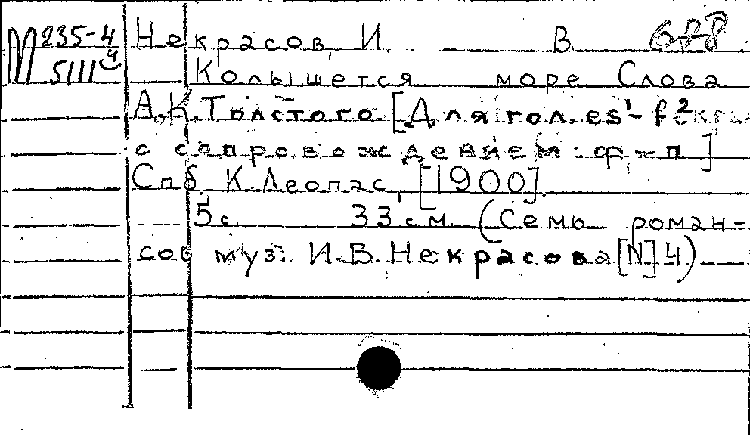 М 235-4 Некрасов И. В. 688
5111 ч Колышется море Слова
А.К. Толстого [Для гол. es¹-f²
с сопровождением: ф-п]
Спб. К. Леопас, [1900].
5 с. 33 см. (Семь роман-
сов муз. И.В. Некрасова [N] 4)